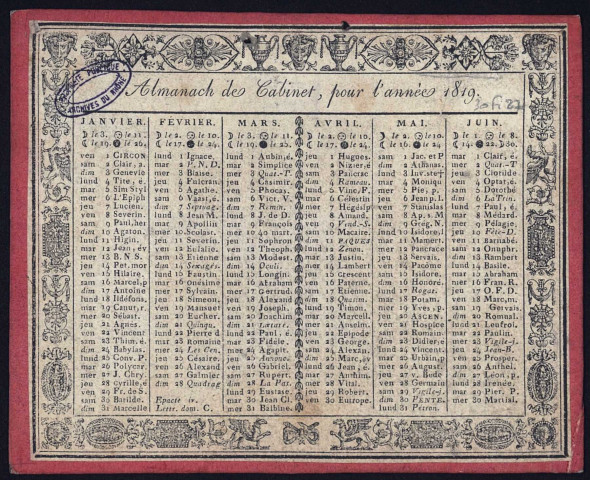 PROPRIÉTÉ PUBLIQUE
ARCHIVES DU RHÔNE
Almanach de Cabinet, pour l'année 1819.
JANVIER. FÉVRIER. MARS. AVRIL. MAI. JUIN.
ven 1 CIRCON. lund 1 Ignace. lund 1 Aubin, é. jeu 1 Hugues. sam 1 Jac. et P mar 1 Clair, é.
mar 2 P. N. D. mar 2 Simplice ven 2 Nizier, é dim 2 Athan. mer 2 Quat.-T
dim 3 Genevie mer 3 Blaise. mer 3 Quat.-T. sam 3 Pancrac lund 3 Inv. ste † jeu 3 Clotilde
lund 4 Tite, é. jeu 4 jeu 4 Casimir. dim 4 Rameau. mar 4 Moniqu ven 4 Optat, é.
mar 5 Sim Styl ven 5 Agathe. ven 5 Phocas. lund 5 Vinc. F. mer 5 Pie, p. sam 5 Dorothé
mer 6 L'Epiph sam 6 Vaast, é. sam 6 Vict. V. mar 6 Célestin jeu 6 Jean p. l. dim 6 La Trin.
jeu 7 Lucien. dim 7 Septuag. dim 7 Remin. mer 7 Hegésip ven 7 Stanislas lund 7 Paul, é.
ven 8 Severin. lund 8 Jean M. lund 8 J. de D. jeu 8 Amand. sam 8 Ap. s. M mar 8 Médard.
sam 9 Paul, her mar 9 Apollin mar 9 François ven 9 Vend.-S. dim 9 Grég. N. mer 9 Pélagie
dim 10 Agaton. mer 10 Scolast. mer 10 40 mart. sam 10 Macaire. lund 10 Isidore, l jeu 10 Fête-D.
lund 11 Higin. jeu 11 Severin. jeu 11 Sophron dim 11 PAQUES mar 11 Mamert. ven 11 Barnabé.
mar 12 Jean, év ven 12 Eulalie. ven 12 Theoph. lund 12 Zenon. mer 12 Pancrac sam 12 Onuphr.
mer 13 B. N. S. sam 13 Etienne sam 13 Modest. mar 13 Justin. jeu 13 Servais. dim 13 Rambert
jeu 14 Pet. mor dim 14 Sexagés. dim 14 Oculi. mer 14 Lambert ven 14 Pacôme lund 14 Basile.
ven 15 Hilaire. lund 15 Faustin. lund 15 Longin. jeu 15 Crescent sam 15 Isidore. mar 15 Abraham
sam 16 Marcel, p mar 16 Onésime mar 16 Abraham ven 16 Paterne. dim 16 Honoré. mer 16 Fran. R.
dim 17 Antoine mer 17 Sylvain. mer 17 Gertrud. sam 17 Etienne. lund 17 Rogat. jeu 17 O. F. D.
lund 18 jeu 18 Simeon. jeu 18 Alexand dim 18 Quasim. mar 18 Potam. ven 18 Marc, m.
mar 19 Canut, r. ven 19 Mansuet ven 19 Joseph. lund 19 Timon. mer 19 Yves, p. sam 19 Gervais.
mer 20 Sébast. sam 20 Eucher. sam 20 Joachim mar 20 Marcell. jeu 20 dim 20 Romual.
jeu 21 Agnès. dim 21 Quinq. dim 21 Lætare. mer 21 Anselm. ven 21 Hospice lund 21 Leufroi.
ven 22 Vincent lund 22 Pierre d lund 22 Paul, é. jeu 22 Epipode sam 22 Romain mar 22 Paulin.
sam 23 mar 23 Romaine mar 23 Fidèle. ven 23 George. dim 23 Didier, é mer 23 Vigile-j.
dim 24 Babylas. mer 24 Les Cen. mer 24 Agapit. sam 24 Alexan. lund 24 Vincent. jeu 24 Jean-B.
lund 25 Conv. P. jeu 25 Césaire. jeu 25 Annonc. dim 25 Marc, év mar 25 Urbain. ven 25 Prosper.
mar 26 Polycar. ven 26 Alexand ven 26 Gabriel. lund 26 mer 26 August. sam 26 Anthel.
mer 27 J. Chry. sam 27 Galmier sam 27 Rupert. mar 27 Anthim. jeu 27 v. Bede.
jeu 28 cyrille, é dim 28 Quadrag dim 28 La Pas. mer 28 Vital. ven 28 Germain lund 28 Irenée.
ven 29 Fr. de S. lund 29 Eustase jeu 29 Robert. sam 29 Vigile-j. mar 29 Pier. P.
sam 30 Batilde. Epacte iv. mar 30 Jean Cl. ven 30 Eutrope. dim 30 PENTE. mer 30 Martial.
dim 31 Marcelle Lettr. dom. C. mer 31 Balbine. lund 31 Petron.